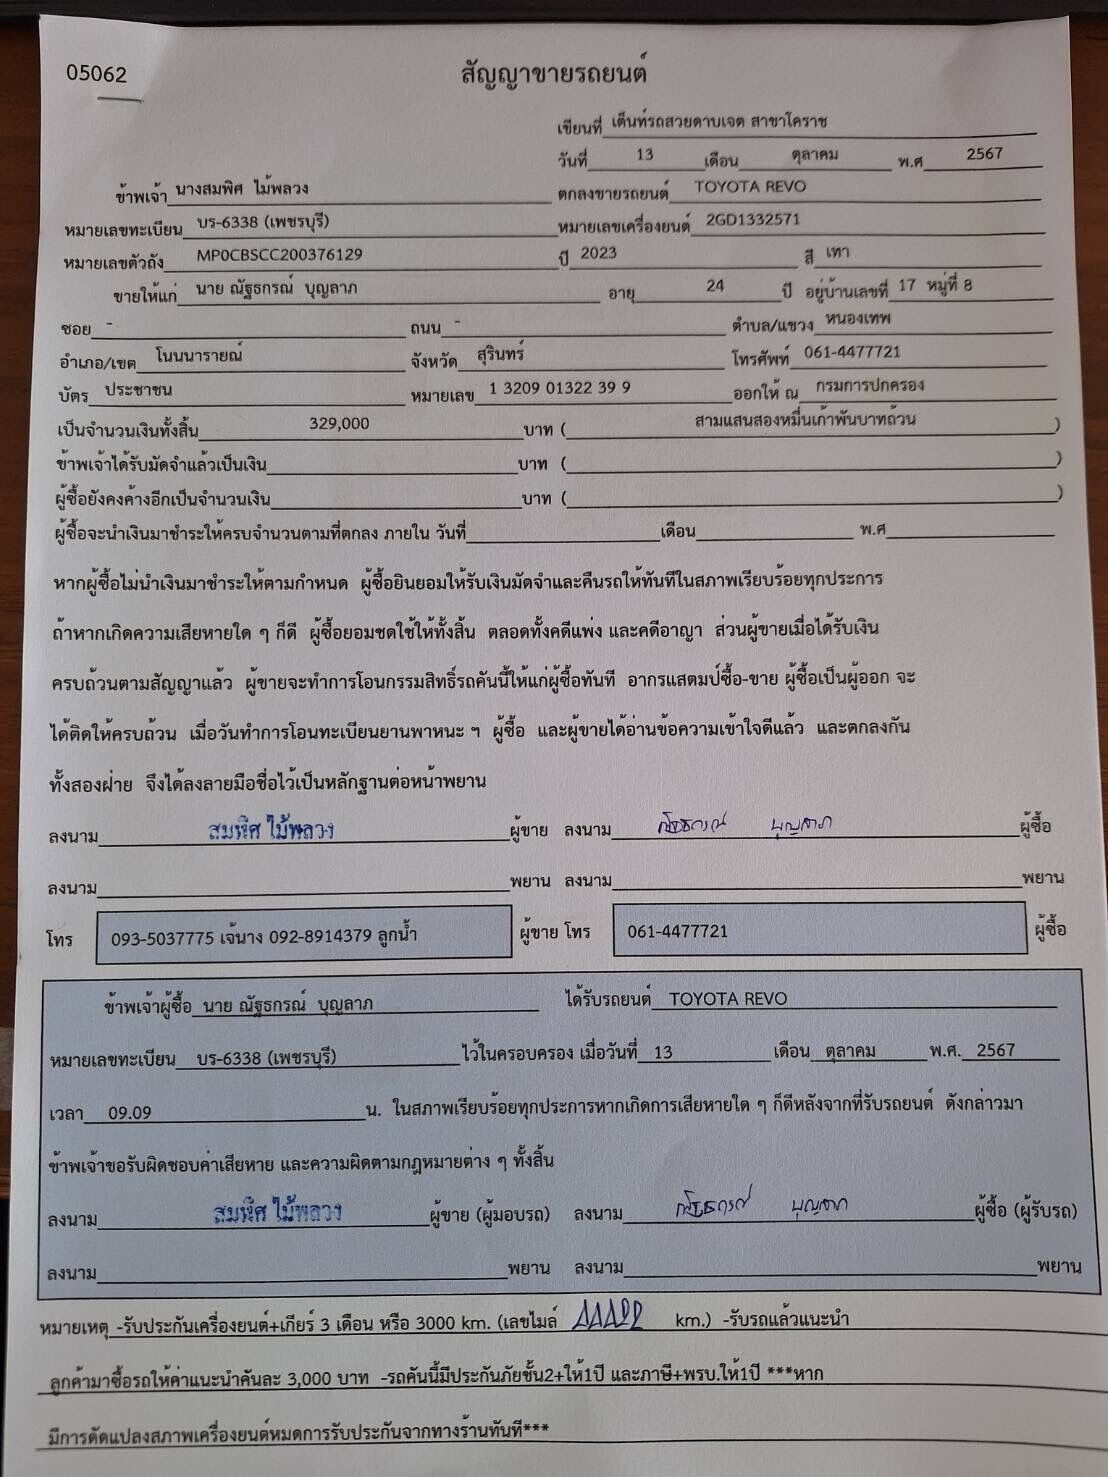 05062
สัญญาขายรถยนต์
เขียนที่ เต็นท์รถสวยดาบเจต สาขาโคราช
วันที่ 13 เดือน ตุลาคม พ.ศ 2567
ข้าพเจ้า นางสมพิศ ไม้พลวง ตกลงขายรถยนต์ TOYOTA REVO
หมายเลขทะเบียน บร-6338 (เพชรบุรี) หมายเลขเครื่องยนต์ 2GD1332571
หมายเลขตัวถัง MP0CBSCC200376129 ปี 2023 สี เทา
ขายให้แก่ นาย ณัฐธกรณ์ บุญลาภ อายุ 24 ปี อยู่บ้านเลขที่ 17 หมู่ที่ 8
ซอย - ถนน - ตำบล/แขวง หนองเทพ
อำเภอ/เขต โนนนารายณ์ จังหวัด สุรินทร์ โทรศัพท์ 061-4477721
บัตร ประชาชน หมายเลข 1 3209 01322 39 9 ออกให้ ณ กรมการปกครอง
เป็นจำนวนเงินทั้งสิ้น 329,000 บาท ( สามแสนสองหมื่นเก้าพันบาทถ้วน )
ข้าพเจ้าได้รับมัดจำแล้วเป็นเงิน บาท ( )
ผู้ซื้อยังคงค้างอีกเป็นจำนวนเงิน บาท ( )
ผู้ซื้อจะนำเงินมาชำระให้ครบจำนวนตามที่ตกลง ภายใน วันที่ เดือน พ.ศ
หากผู้ซื้อไม่นำเงินมาชำระให้ตามกำหนด ผู้ซื้อยินยอมให้รับเงินมัดจำและคืนรถให้ทันทีในสภาพเรียบร้อยทุกประการ
ถ้าหากเกิดความเสียหายใด ๆ ก็ดี ผู้ซื้อยอมชดใช้ให้ทั้งสิ้น ตลอดทั้งคดีแพ่ง และคดีอาญา ส่วนผู้ขายเมื่อได้รับเงิน
ครบถ้วนตามสัญญาแล้ว ผู้ขายจะทำการโอนกรรมสิทธิ์รถคันนี้ให้แก่ผู้ซื้อทันที อากรแสตมป์ซื้อ-ขาย ผู้ซื้อเป็นผู้ออก จะ
ได้ติดให้ครบถ้วน เมื่อวันทำการโอนทะเบียนยานพาหนะ ฯ ผู้ซื้อ และผู้ขายได้อ่านข้อความเข้าใจดีแล้ว และตกลงกัน
ทั้งสองฝ่าย จึงได้ลงลายมือชื่อไว้เป็นหลักฐานต่อหน้าพยาน
ลงนาม สมพิศ ไม้พลวง ผู้ขาย ลงนาม ณัฐธกรณ์ บุญลาภ ผู้ซื้อ
ลงนาม พยาน ลงนาม พยาน
โทร 093-5037775 เจ้นาง 092-8914379 ลูกน้ำ ผู้ขาย โทร 061-4477721 ผู้ซื้อ
ข้าพเจ้าผู้ซื้อ นาย ณัฐธกรณ์ บุญลาภ ได้รับรถยนต์ TOYOTA REVO
หมายเลขทะเบียน บร-6338 (เพชรบุรี) ไว้ในครอบครอง เมื่อวันที่ 13 เดือน ตุลาคม พ.ศ. 2567
เวลา 09.09 น. ในสภาพเรียบร้อยทุกประการหากเกิดการเสียหายใด ๆ ก็ดีหลังจากที่รับรถยนต์ ดังกล่าวมา
ข้าพเจ้าขอรับผิดชอบค่าเสียหาย และความผิดตามกฎหมายต่าง ๆ ทั้งสิ้น
ลงนาม สมพิศ ไม้พลวง ผู้ขาย (ผู้มอบรถ) ลงนาม ณัฐธกรณ์ บุญลาภ ผู้ซื้อ (ผู้รับรถ)
ลงนาม พยาน ลงนาม พยาน
หมายเหตุ -รับประกันเครื่องยนต์+เกียร์ 3 เดือน หรือ 3000 km. (เลขไมล์ km.) -รับรถแล้วแนะนำ
ลูกค้ามาซื้อรถให้ค่าแนะนำคันละ 3,000 บาท -รถคันนี้มีประกันภัยชั้น2+ให้1ปี และภาษี+พรบ.ให้1ปี ***หาก
มีการดัดแปลงสภาพเครื่องยนต์หมดการรับประกันจากทางร้านทันที***